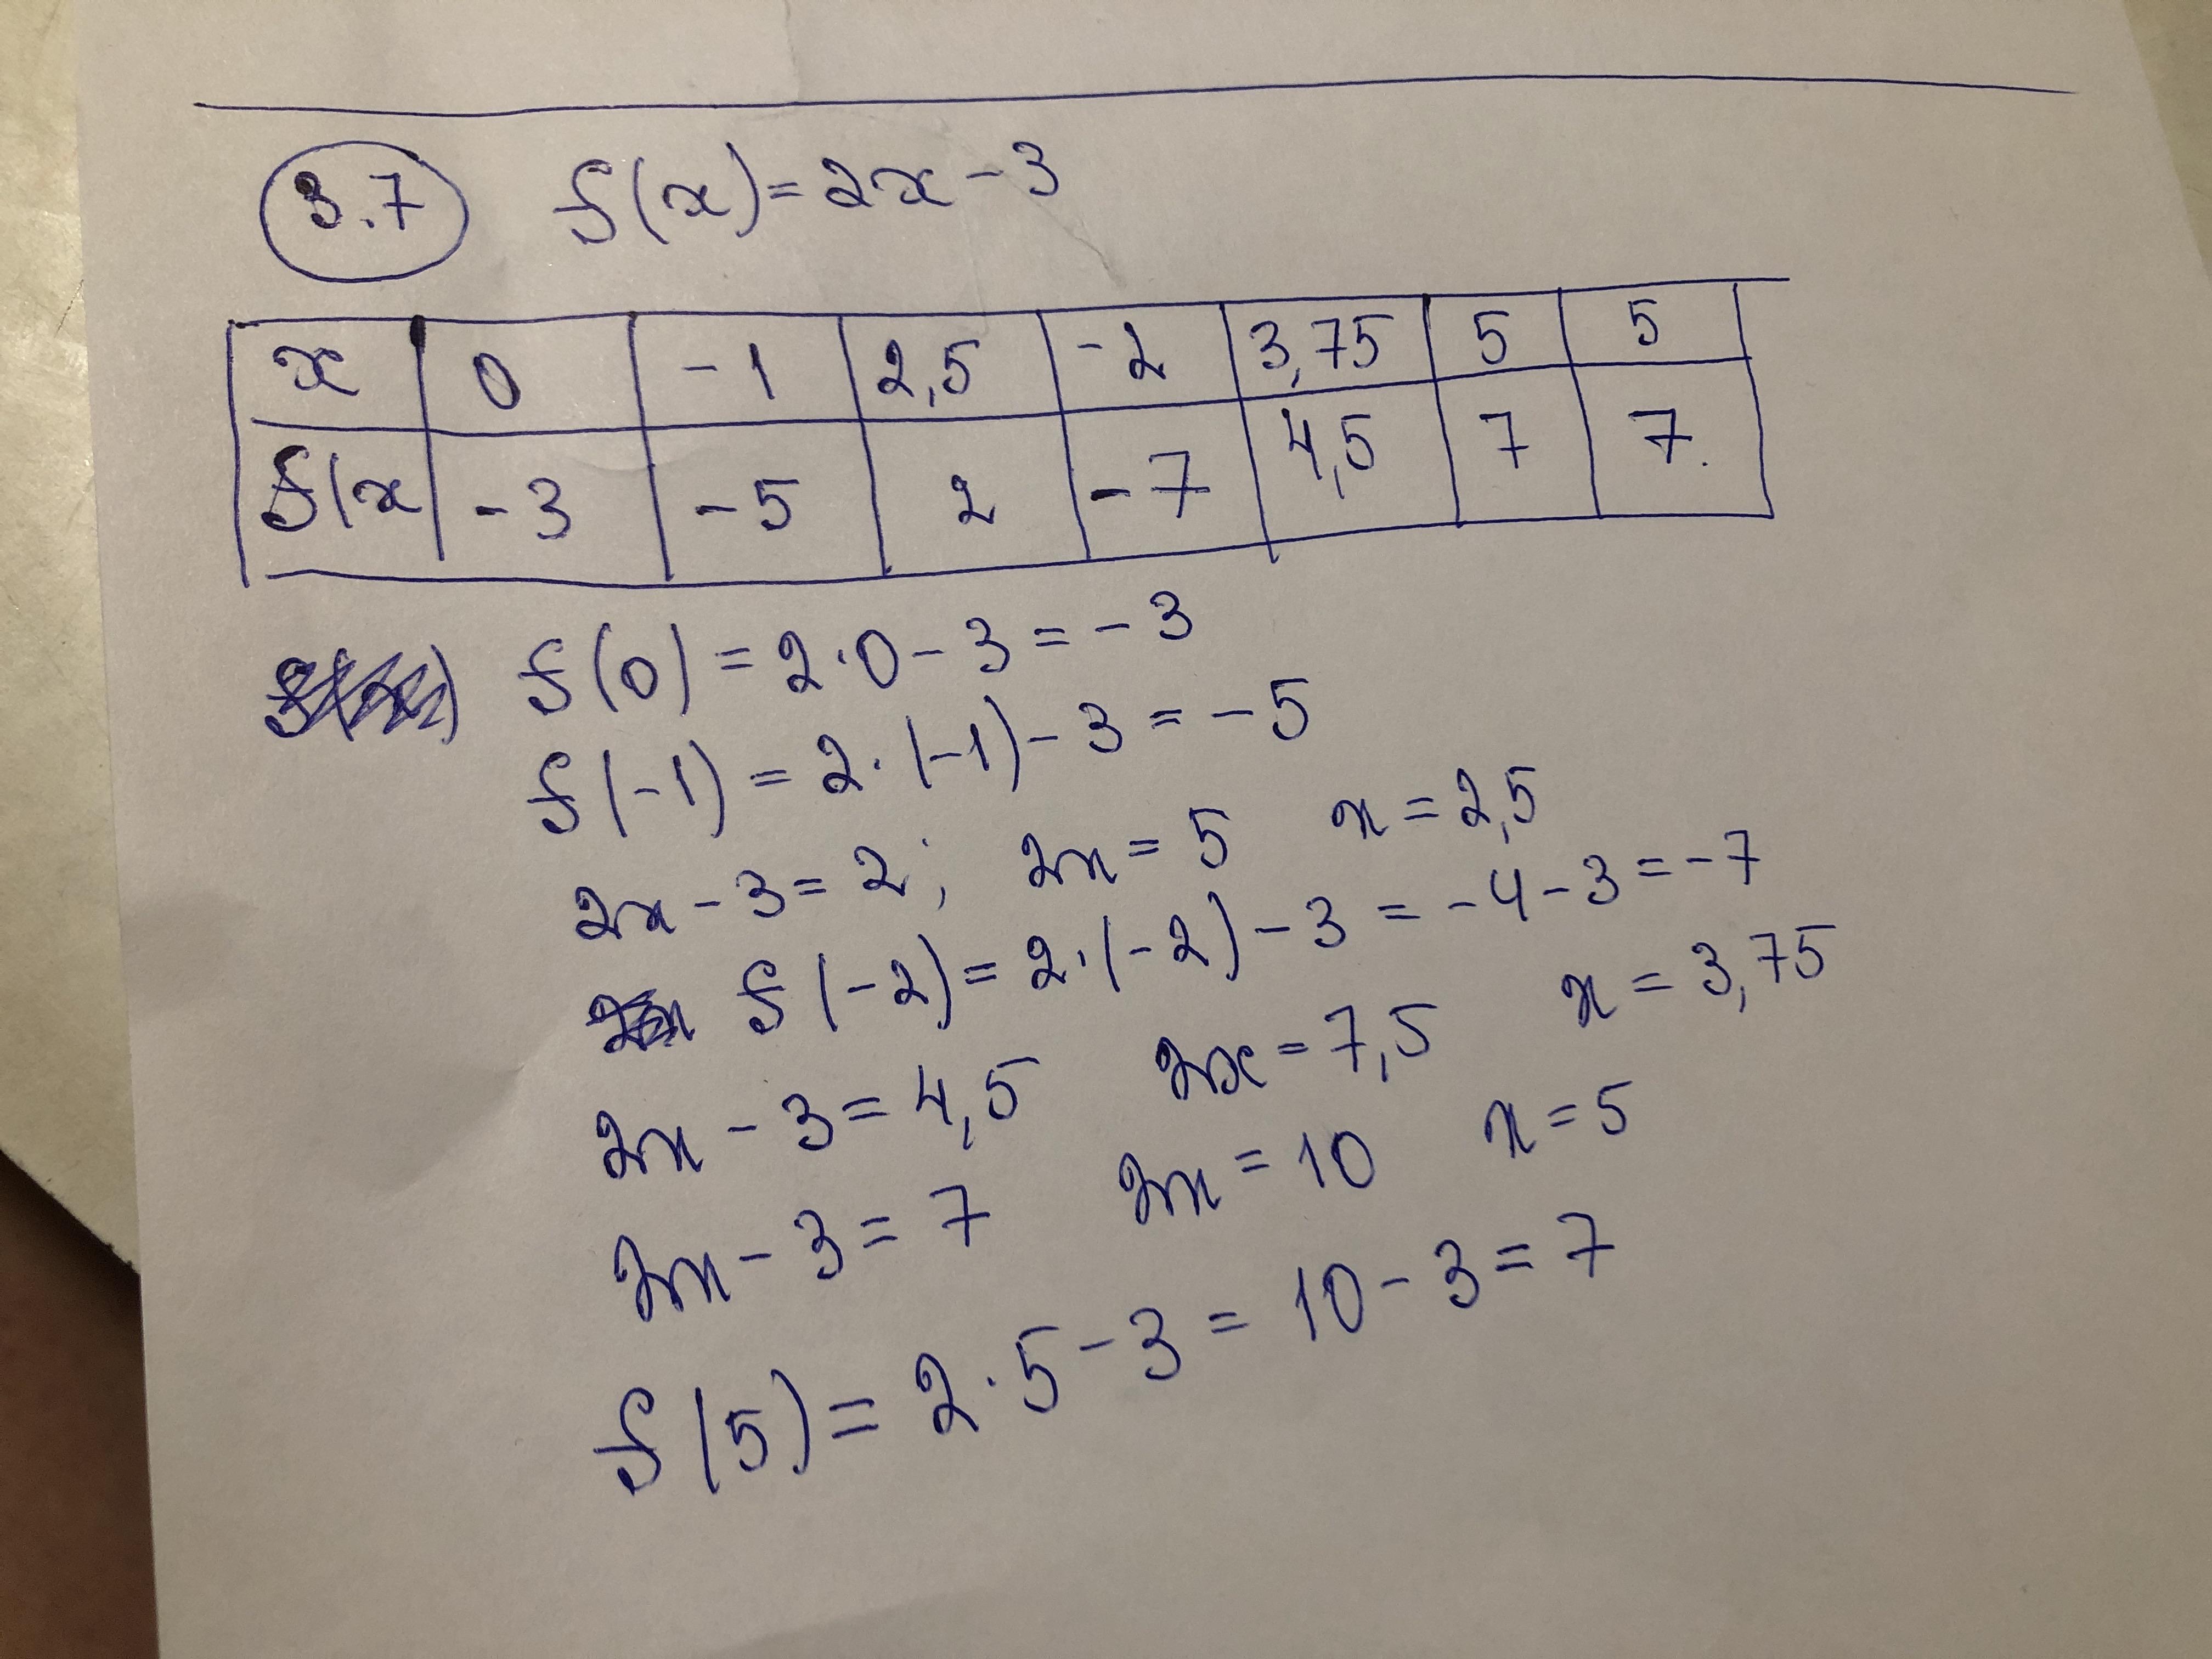 3.7 f(x)=2x-3
x 0 -1 2,5 -2 3,75 5 5
f(x -3 -5 2 -7 4,5 7 7.
f(0)=2·0-3=-3
f(-1)=2·(-1)-3=-5
2x-3=2; 2x=5 x=2,5
f(-2)=2·(-2)-3=-4-3=-7
2x-3=4,5 2x=7,5 x=3,75
2x-3=7 2x=10 x=5
f(5)=2·5-3=10-3=7